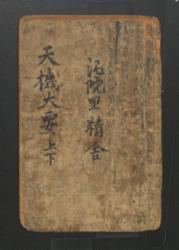 天機大要 上下
泥院里精舍